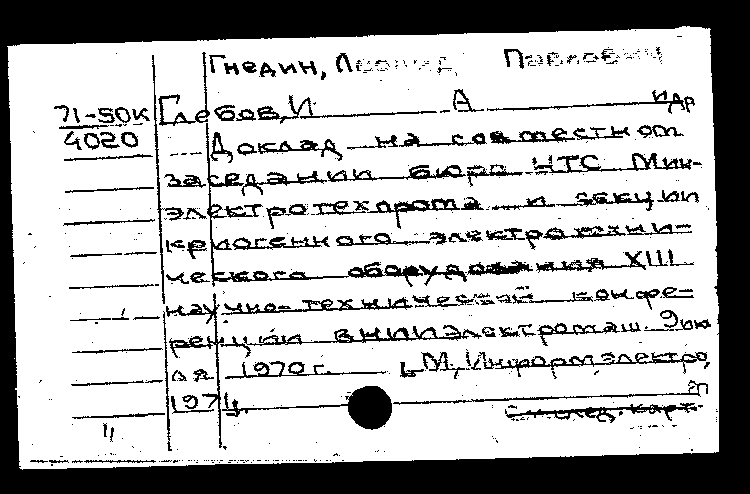 Гнедин, Леонид Павлович
71-50к Глебов, И А и др
4020 Доклад на совместном
заседании бюро НТС Мин-
электротехпрома и секции
криогенного электротехни-
ческого оборудования XIII
научно-технической конфе-
ренции ВНИИэлектромаш. 9 ию
ля 1970 г. М, Информэлектро,
1971.
См. след. карт.